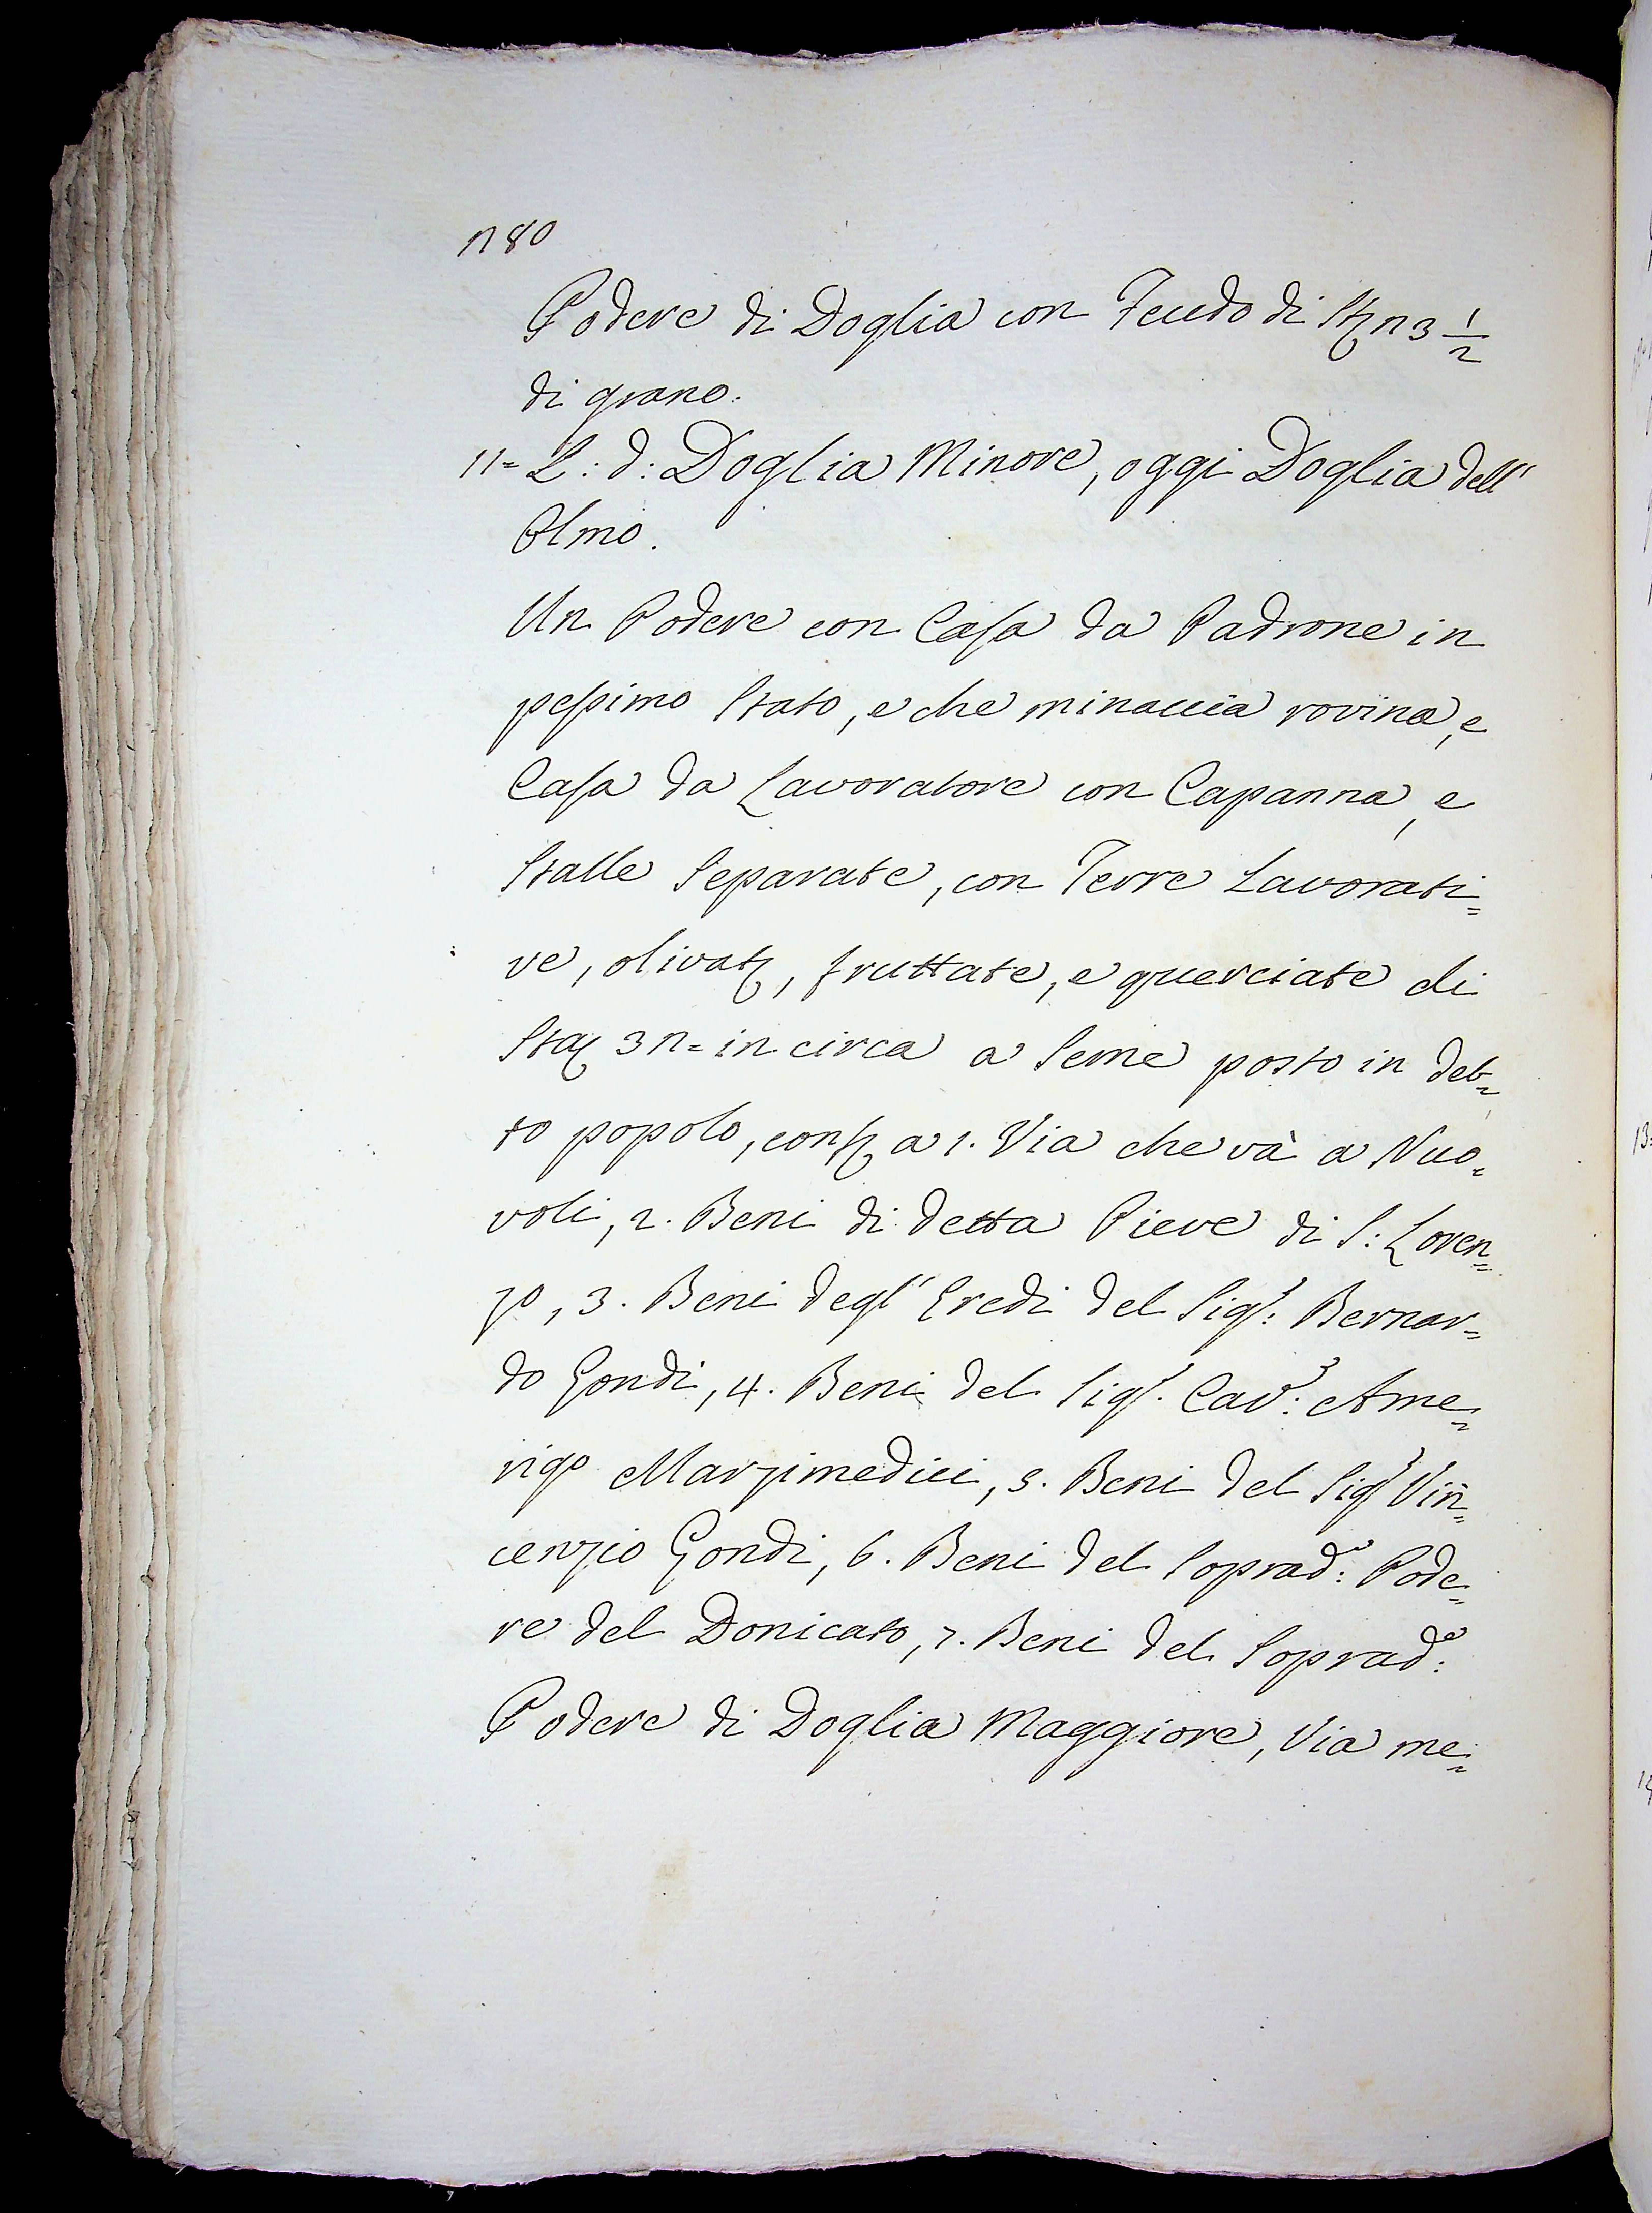 280
Podere di Doglia con Feudo di St: 23 1/2
di grano.
11= L: d: Doglia Minore, oggi Doglia dell'
Olmo.
Un Podere con Casa da Padrone in
pessimo Stato, e che minaccia rovina, e
Casa da Lavoratore con Capanna, e
Stalle Separate, con Terre Lavorati=
ve, olivat:, fruttate, e querciate di
Sta: 32= in circa a Seme posto in det=
to popolo, conf: a 1. Via che và a Nuo=
voli, 2. Beni di detta Pieve di S: Loren=
zo, 3. Beni degl' Eredi del Sig.r: Bernar=
do Gondi, 4. Beni del Sig.r Cav.r: Ame=
rigo Marzimedici, 5. Beni del Sig.r Vin=
cenzio Gondi, 6. Beni del Soprad.o: Pode=
re del Donicato, 7. Beni del Soprad.o:
Podere di Doglia Maggiore, Via me=